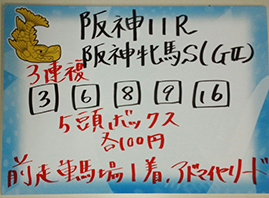 阪神11R
阪神牝馬S(GⅡ)
3連複
3 6 8 9 16
5頭ボックス
各100円
前走重馬場1着、アドマイヤリード